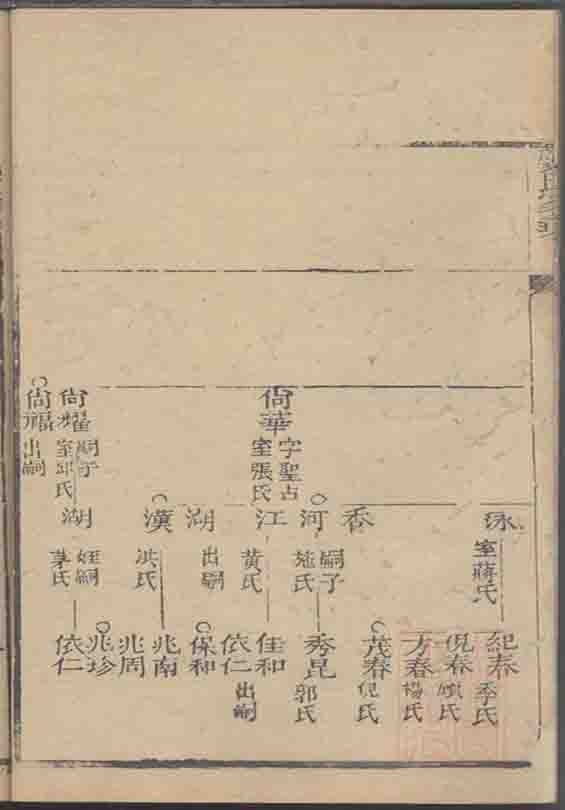 泳
室蔣氏
紀春
季氏
倪春
方春
楊氏
茂春
倪氏
香
河
嗣子
施氏
秀昆
郭氏
尙華
字聖占
室張氏
江
黄氏
佳和
依仁
出嗣
湖
出嗣
保和
漢
洪氏
兆南
兆周
兆珍
尙耀
嗣子
室邱氏
湖
姪嗣
茅氏
依仁
尙福
出嗣